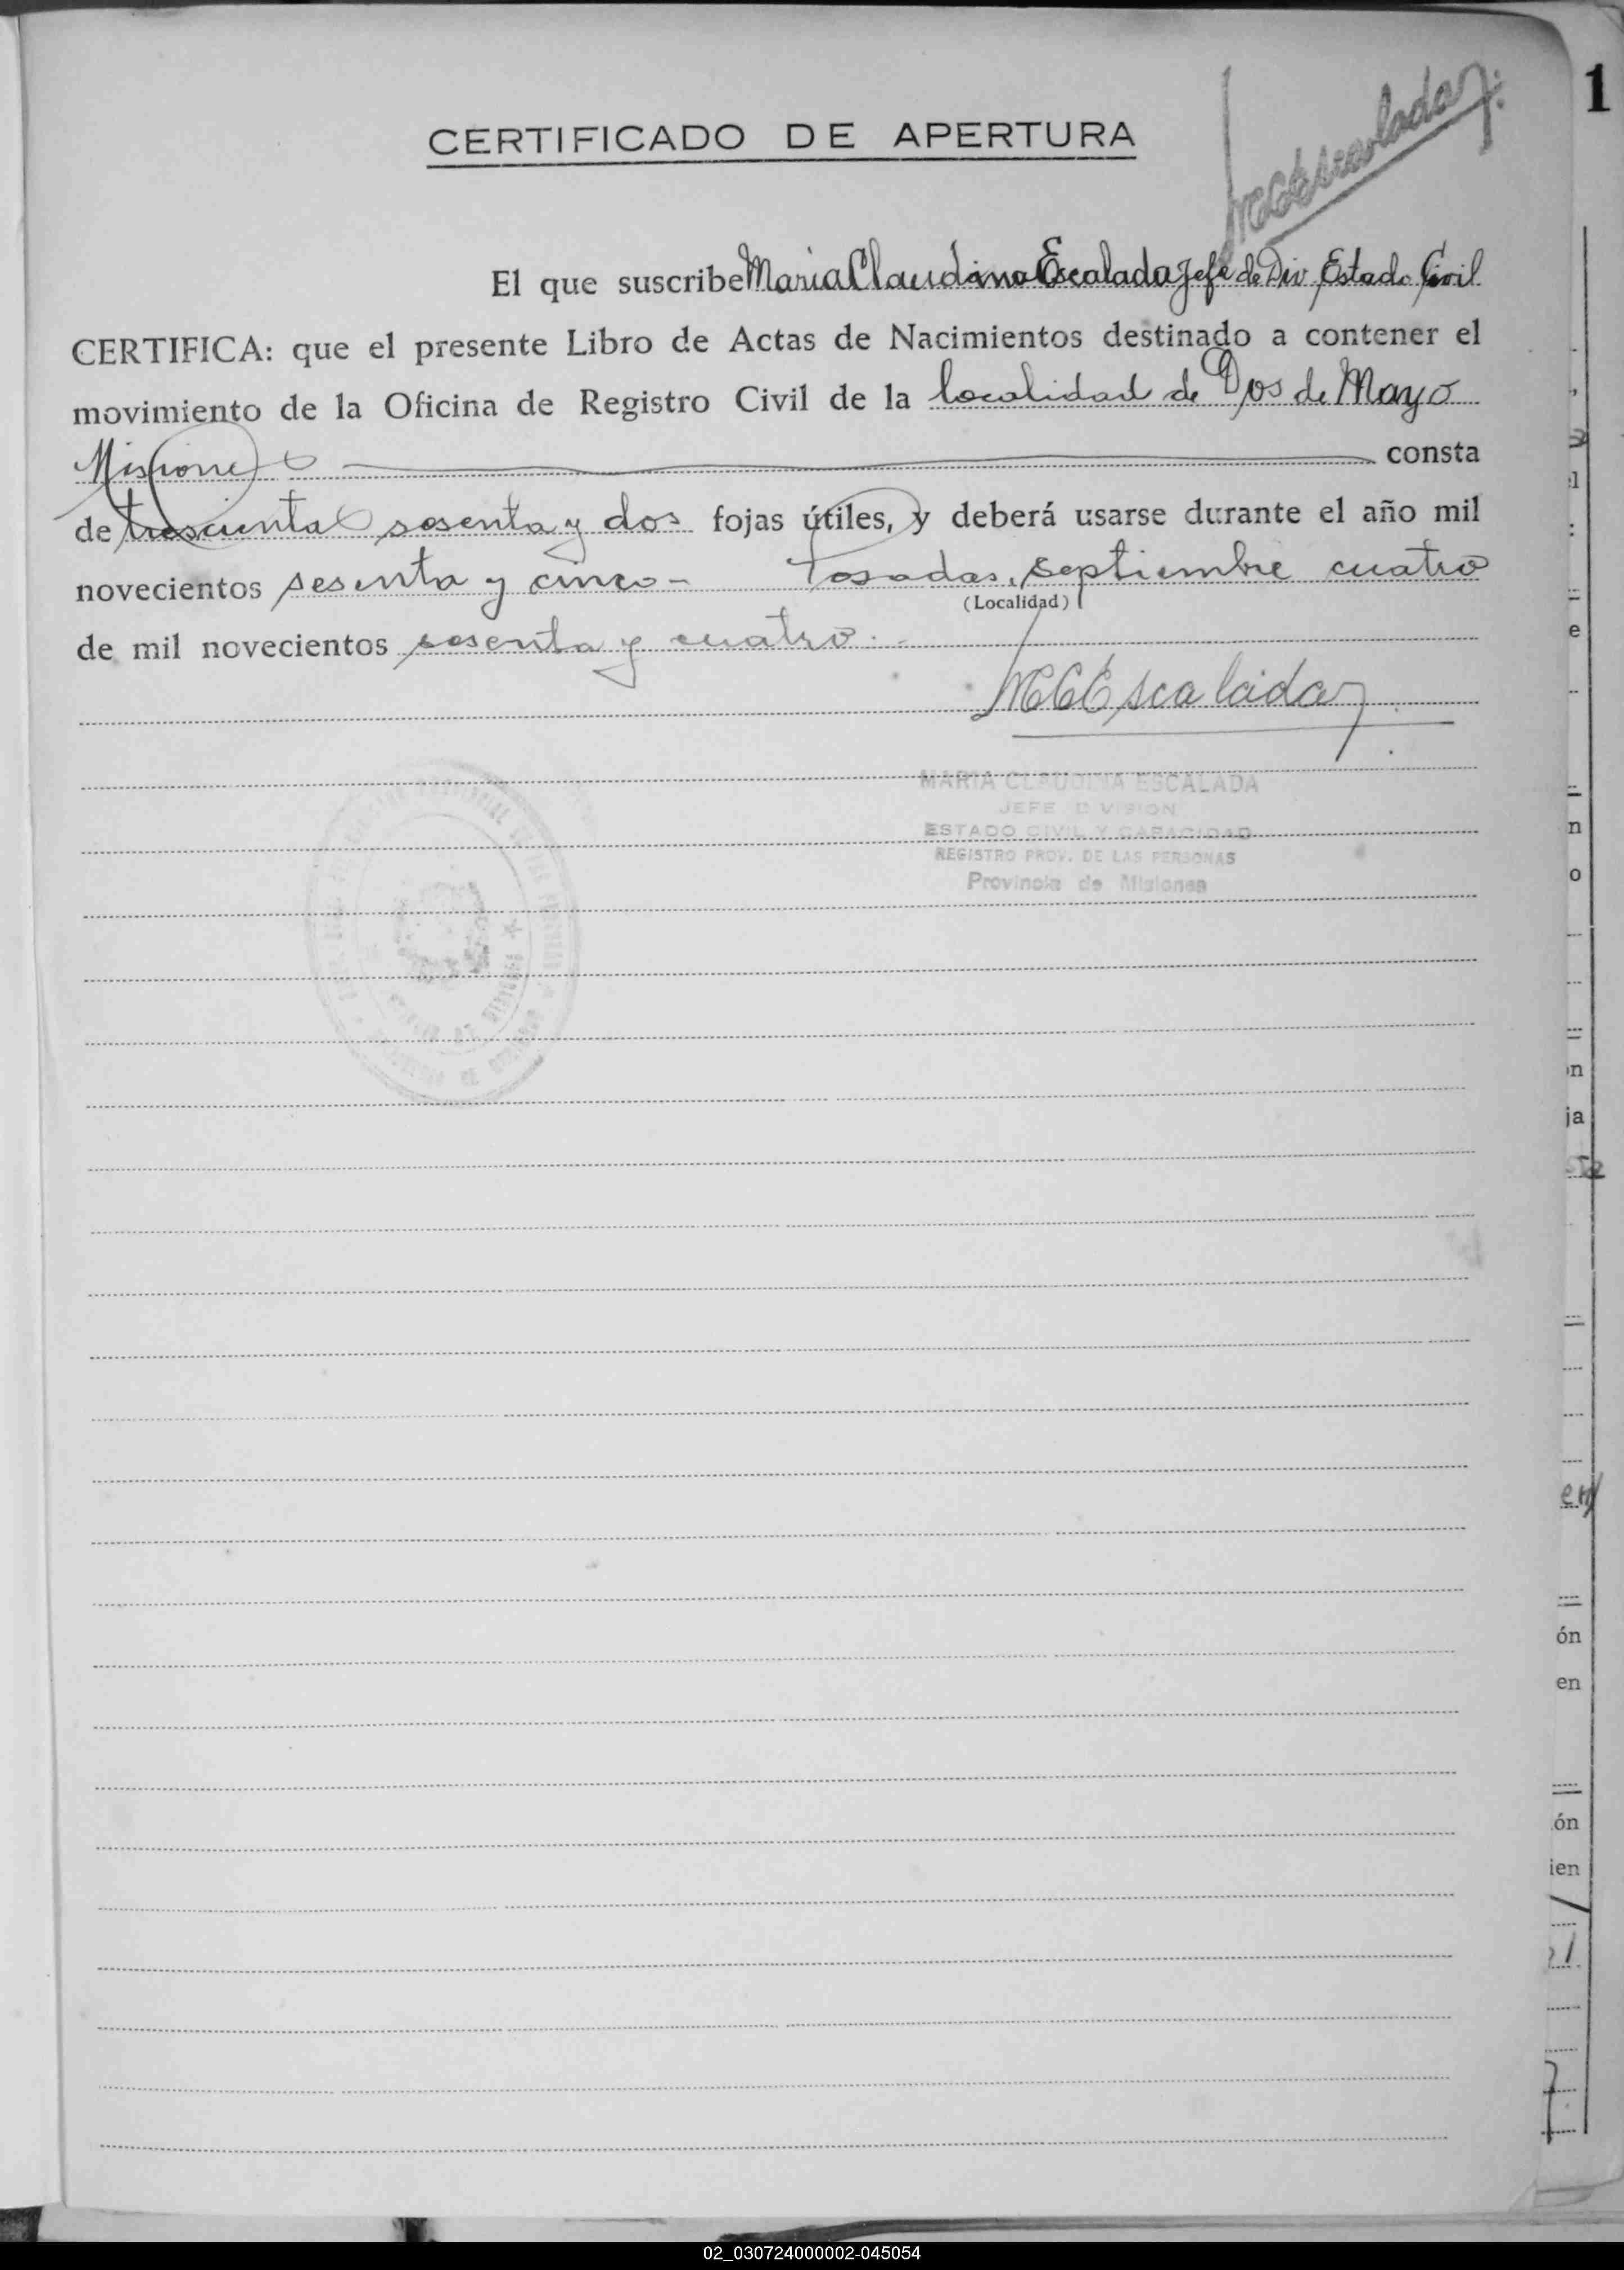 1
MCEscalada
CERTIFICADO DE APERTURA
El que suscribe Maria Claudina Escalada Jefe de Div. Estado Civil
CERTIFICA: que el presente Libro de Actas de Nacimientos destinado a contener el
movimiento de la Oficina de Registro Civil de la localidad de Dos de Mayo
Misiones consta
de trescientas sesenta y dos fojas útiles, y deberá usarse durante el año mil
novecientos sesenta y cinco - Posadas, septiembre cuatro
(Localidad)
de mil novecientos sesenta y cuatro. -
MCEscalada
MARIA CLAUDINA ESCALADA
JEFE DIVISION
ESTADO CIVIL Y CAPACIDAD
REGISTRO PROV. DE LAS PERSONAS
Provincia de Misiones
02_030724000002-045054